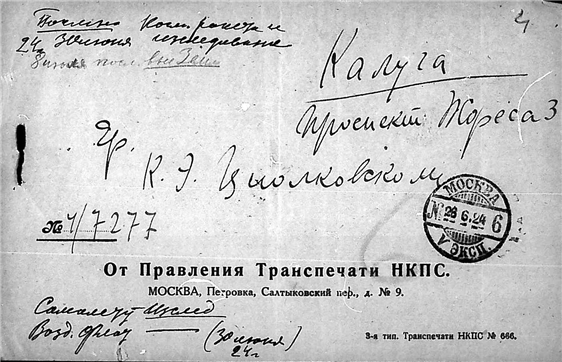 Послано Косм. ракета и
24 г. 30 июня исследование
8 июля
4
Калуга
Проспект Жореса 3
Гр.
К. Э. Циолковскому
№ 4/7277
МОСКВА
№ 26 6.24 6
V ЭКСП.
От Правления Транспечати НКПС.
МОСКВА, Петровка, Салтыковский пер., д. № 9.
Возд. флот (30 июня
24 г
3-я тип. Транспечати НКПС № 666.